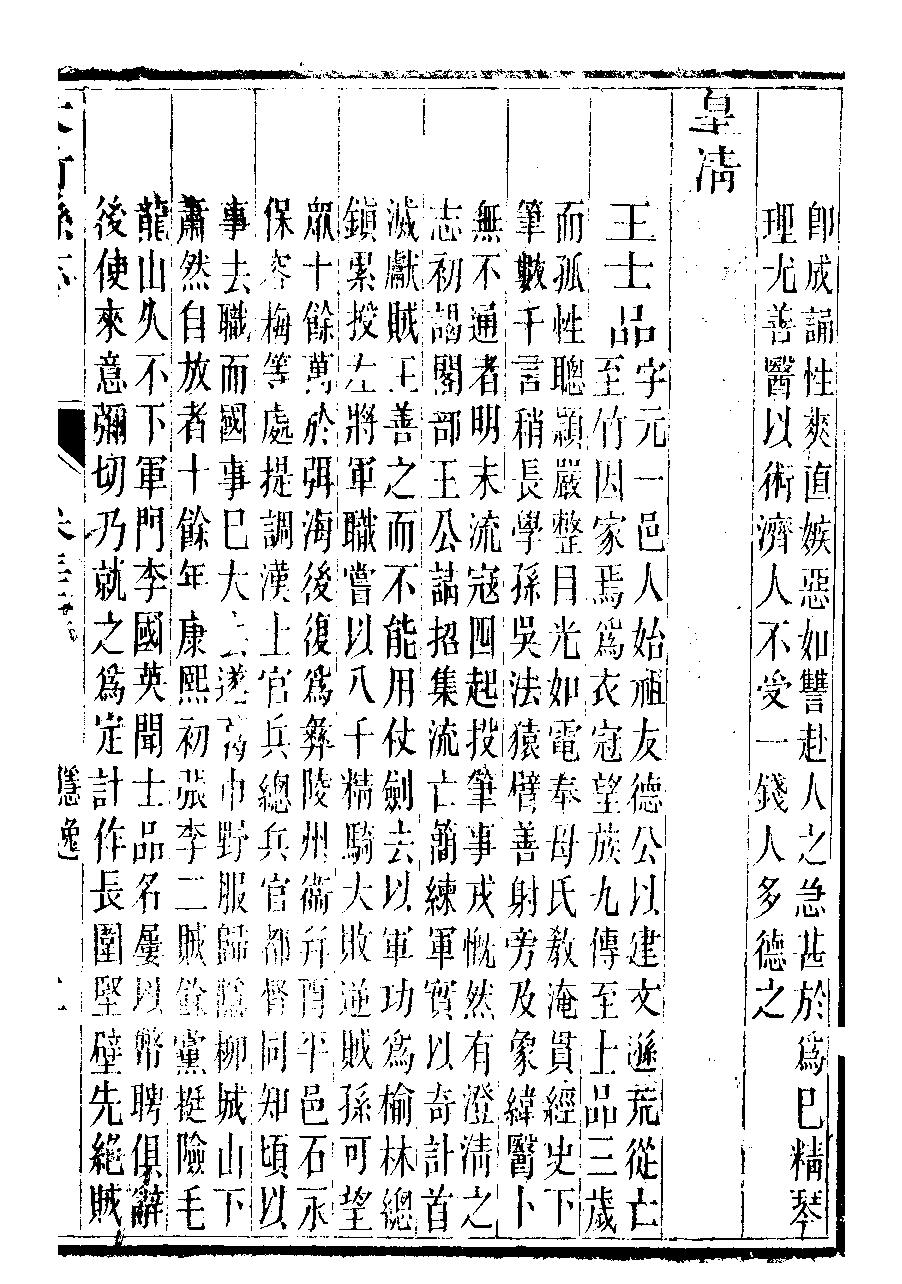 即成誦性爽直嫉惡如讐赴人之急甚於爲己精琴
理尤善醫以術濟人不受一錢人多德之
皇清
王士品字元一邑人始祖友德公以建文遜荒從亡
至竹因家焉爲衣冠望族九傳至士品三歲
而孤性聰頴嚴整目光如電奉母氏敎淹貫經史下
筆數千言稍長學孫吳法猿臂善射旁及象緯醫卜
無不通者明末流冦四起投筆事戎慨然有澄清之
志初謁閣部王公詰招集流亡蕳練軍實以奇計首
滅獻賊王善之而不能用仗劍去以軍功爲榆林總
鎭累授左將軍職嘗以八千精騎大敗逆賊孫可望
衆十餘萬於弭海後復爲彝陵州衞并晋平邑石永
保容梅等處提調漢土官兵總兵官都督同知頃以
事去職而國事已大去遂角巾野服歸隱柳城山下
蕭然自放者十餘年康熙初張李二賊餘黨挺險毛
龍山久不下軍門李國英聞士品名屢以幣聘俱辭
後使來意彌切乃就之爲定計作長圍堅壁先絕賊
大竹縣志
卷三
隱逸